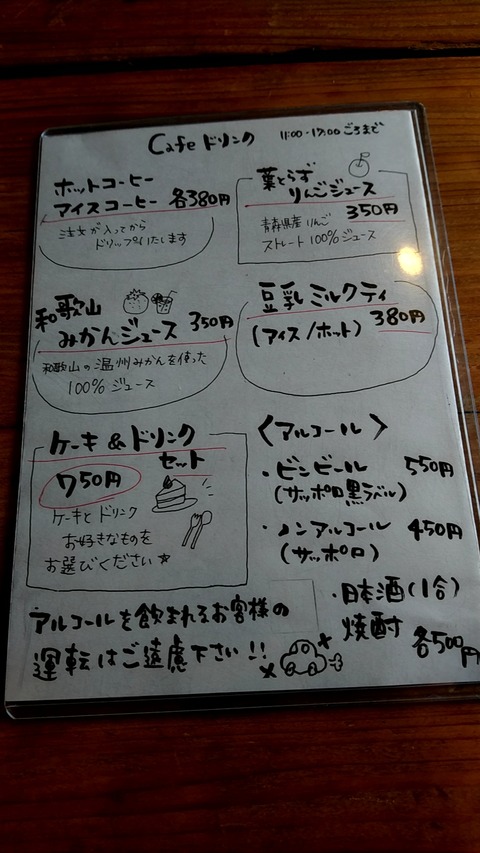 Cafe ドリンク 11:00-17:00 ごろまで
ホットコーヒー
アイスコーヒー 各380円
注文が入ってから
ドリップいたします
葉とらず
りんごジュース
350円
青森県産りんご
ストレート100%ジュース
和歌山
みかんジュース 350円
和歌山の温州みかんを使った
100% ジュース
豆乳ミルクティ
(アイス/ホット) 380円
ケーキ&ドリンク
セット
750円
ケーキとドリンク
お好きなものを
お選びください☆
〈アルコール〉
・ビンビール 550円
(サッポロ黒ラベル)
・ノンアルコール 450円
(サッポロ)
・日本酒(1合)
焼酎 各500円
アルコールを飲まれるお客様の
運転はご遠慮下さい!!